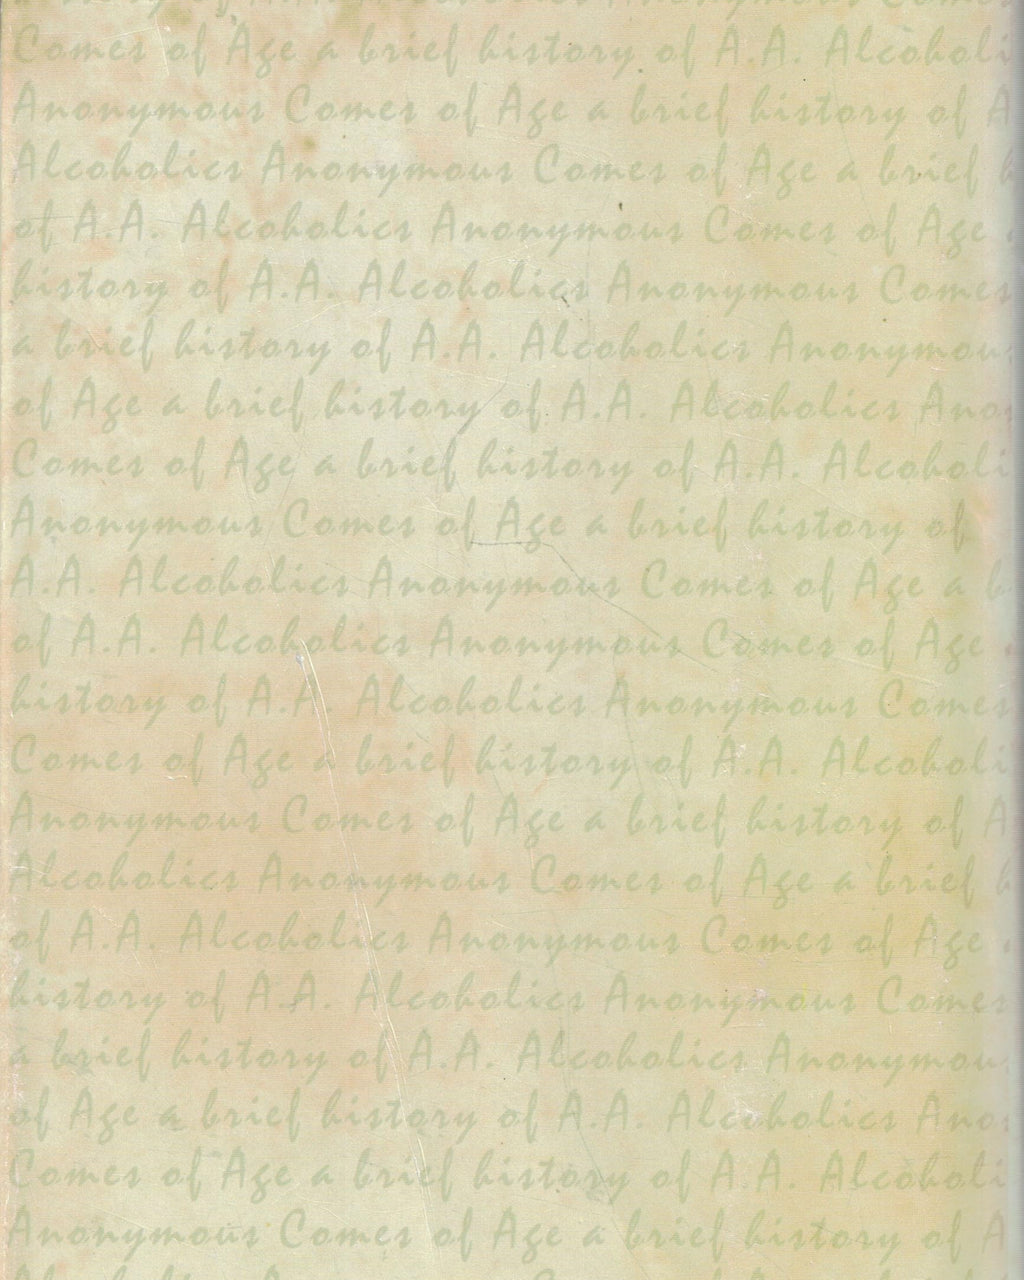 Comes of Age a brief history of A.A. Alcoholi
Anonymous Comes of Age a brief history of A
Alcoholics Anonymous Comes of Age a brief h
of A.A. Alcoholics Anonymous Comes of Age
history of A.A. Alcoholics Anonymous Comes
a brief history of A.A. Alcoholics Anonymous
of Age a brief history of A.A. Alcoholics Anon
Comes of Age a brief history of A.A. Alcoholi
Anonymous Comes of Age a brief history of
A.A. Alcoholics Anonymous Comes of Age a b
of A.A. Alcoholics Anonymous Comes of Age
history of A.A. Alcoholics Anonymous Comes
Comes of Age a brief history of A.A. Alcoholi
Anonymous Comes of Age a brief history of A
Alcoholics Anonymous Comes of Age a brief h
of A.A. Alcoholics Anonymous Comes of Age
history of A.A. Alcoholics Anonymous Comes
a brief history of A.A. Alcoholics Anonymous
of Age a brief history of A.A. Alcoholics Anon
Comes of Age a brief history of A.A. Alcoholi
Anonymous Comes of Age a brief history of A